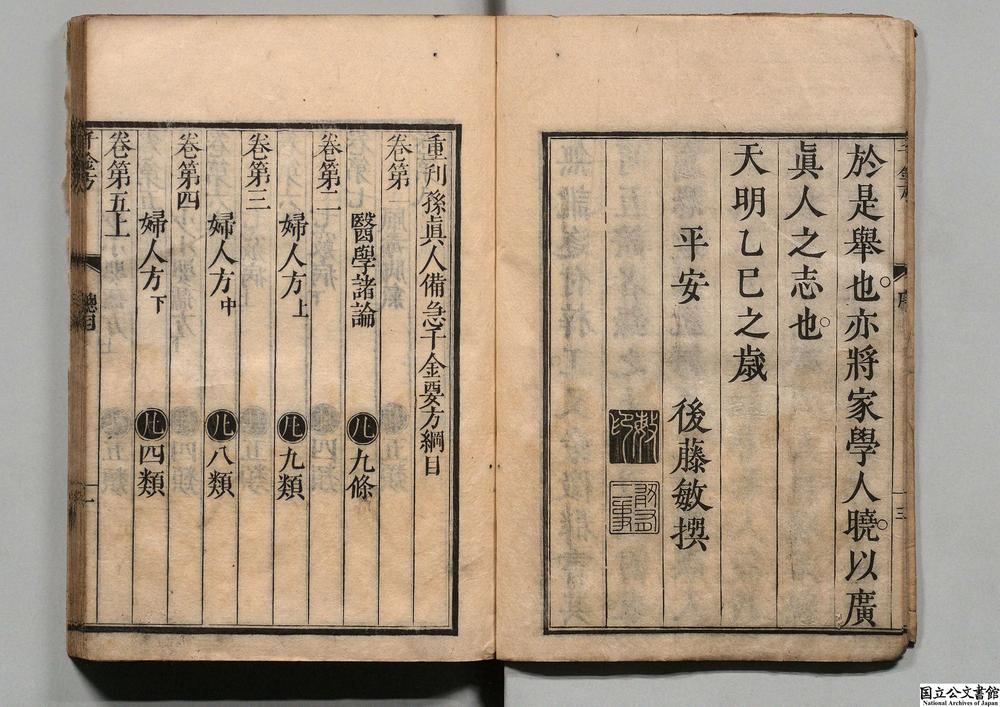 於是舉也亦將家學人曉以廣
眞人之志也
天明乙巳之歳
平安 後藤敏撰
序
三
重刊孫眞人備急千金要方綱目
卷第一
醫學諸論 凡九條
卷第二
婦人方上 凡九類
卷第三
婦人方中 凡八類
卷第四
婦人方下 凡四類
卷第五上
千金方
總目
一
国立公文書館
National Archives of Japan